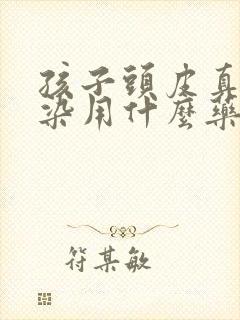 孩子頭皮真
染用什麼藥
符某敏